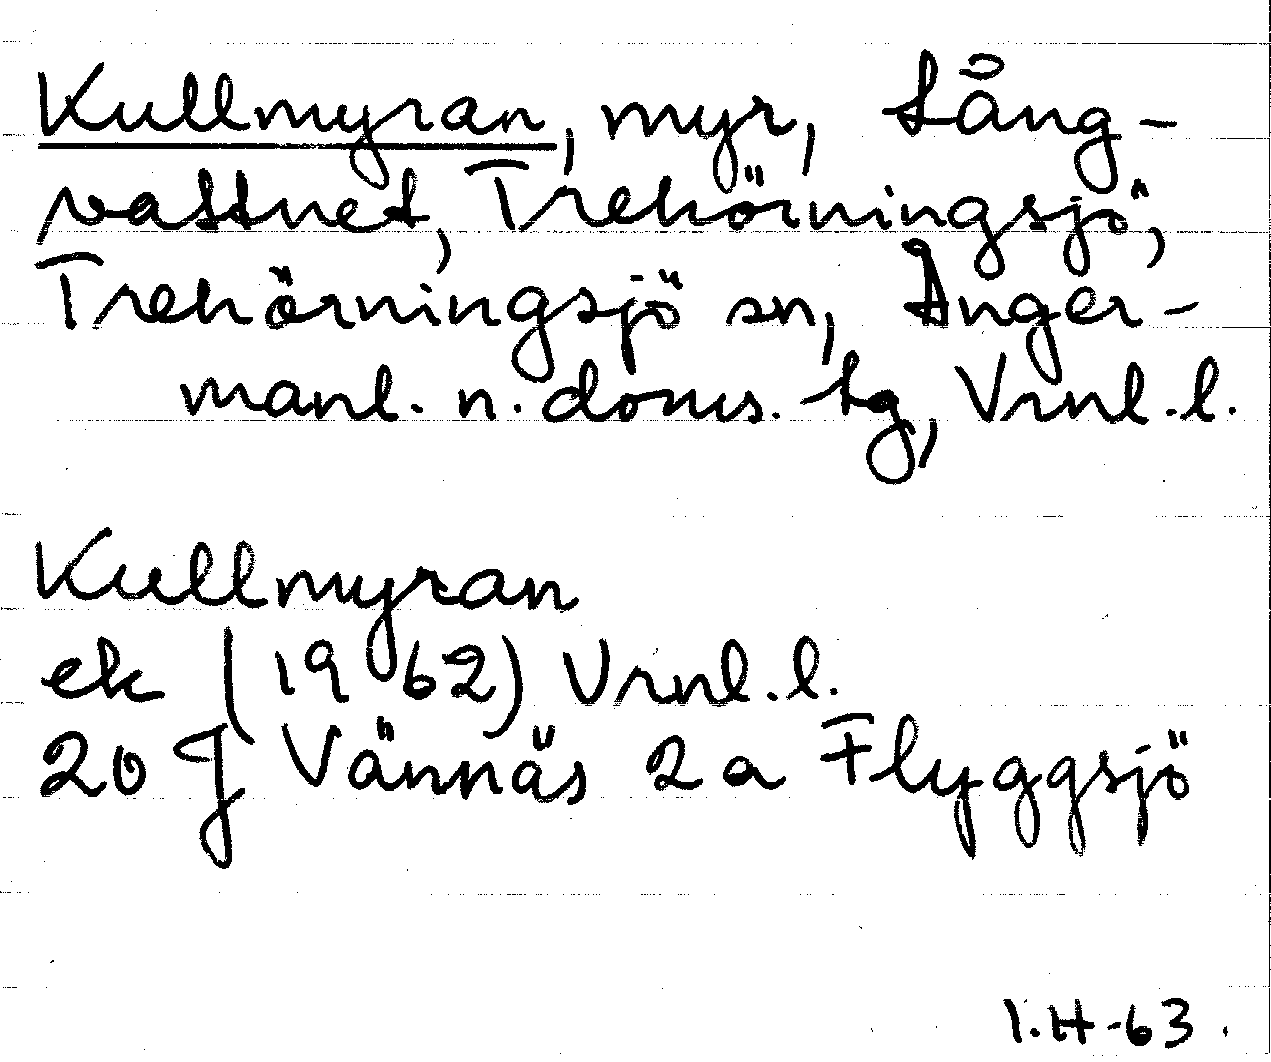 Kullmyran, myr, Lång-
vattnet, Trehörningsjö,
Trehörningsjö sn, Ånger-
manl. n. doms. tg, Vrnl. l.
Kullmyran
ek (1962) Vrnl. l.
20 J Vännäs 2 a Flyggsjö
I.H-63.